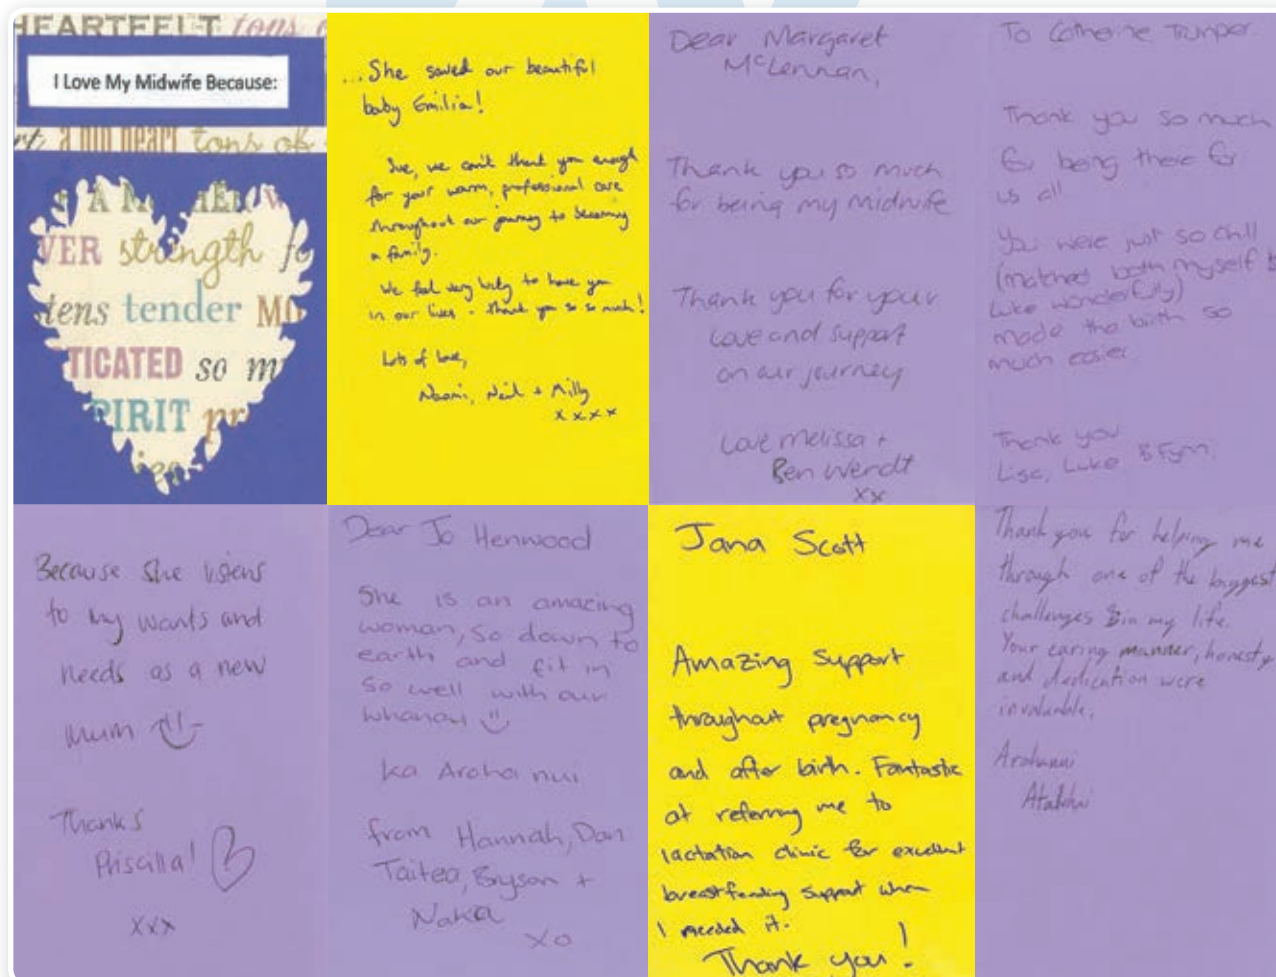 HEARTFELT tons o
I Love My Midwife Because:
a big heart tons of
VER strength fo
tens tender MO
TICATED so m
PIRIT pr
...She saved our beautiful
baby Emilia!
Sue, we can't thank you enough
for your warm, professional care
throughout our journey to becoming
a family.
We feel very lucky to have you
in our lives - thank you so so much!
Lots of love,
Naomi, Neil + Milly
x x x x
Dear Margaret
McLennan,
Thank you so much
for being my midwife
Thank you for your
Love and support
on our journey
Love Melissa +
Ben Wendt
xx
To Catherine Trumper
Thank you so much
for being there for
us all
You were just so chill
(matched both myself &
Luke wonderfully)
made the birth so
much easier.
Thank you
Lisa, Luke & Fynn.
Because she listens
to my wants and
needs as a new
mum
Thanks
Priscilla!
xxx
Dear Jo Henwood
She is an amazing
woman, so down to
earth and fit in
so well with our
whanau
Ka Aroha nui
from Hannah, Dan
Taitea, Bryson +
Naka
xo
Jana Scott
Amazing support
throughout pregnancy
and after birth. Fantastic
at referring me to
lactation clinic for excellent
breastfeeding support when
I needed it.
Thank you!
Thank you for helping me
through one of the biggest
challenges in my life.
Your caring manner, honesty
and dedication were
invaluable.
Arohanui